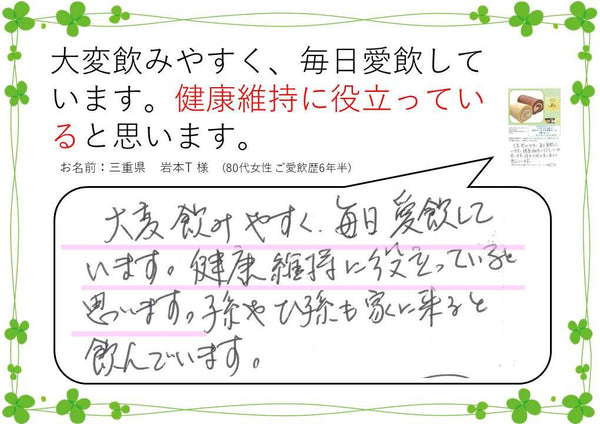 大変飲みやすく、毎日愛飲して
います。健康維持に役立ってい
ると思います。
お名前：三重県　岩本T 様　（80代女性ご愛飲歴6年半）
大変飲みやすく、毎日愛飲して
います。健康維持に役立っていると
思います。孫やひ孫も家に来ると
飲んでいます。